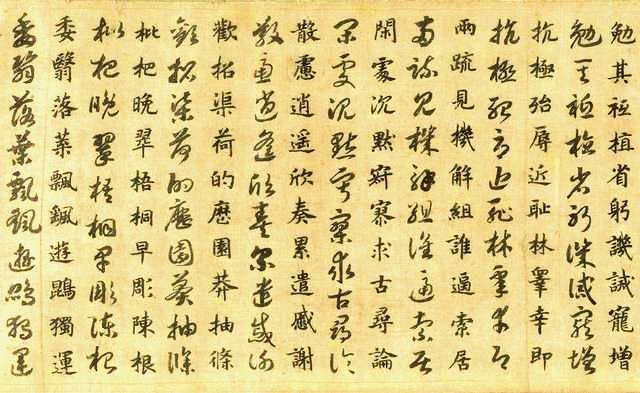 勉其祗植省躬譏誡寵增
勉其祗植省躬譏誡寵增
抗極殆辱近耻林睪幸即
抗極殆辱近耻林睪幸即
兩疏見機解組誰逼索居
兩疏見機解組誰逼索居
閑處沉默寂寥求古尋論
閑處沉默寂寥求古尋論
散慮逍遥欣奏累遣慼謝
散慮逍遥欣奏累遣慼謝
歡招渠荷的歷園莽抽條
歡招渠荷的歷園莽抽條
枇杷晚翠梧桐早彫陳根
枇杷晚翠梧桐早彫陳根
委翳落葉飄飖遊鵾獨運
委翳落葉飄飖遊鵾獨運